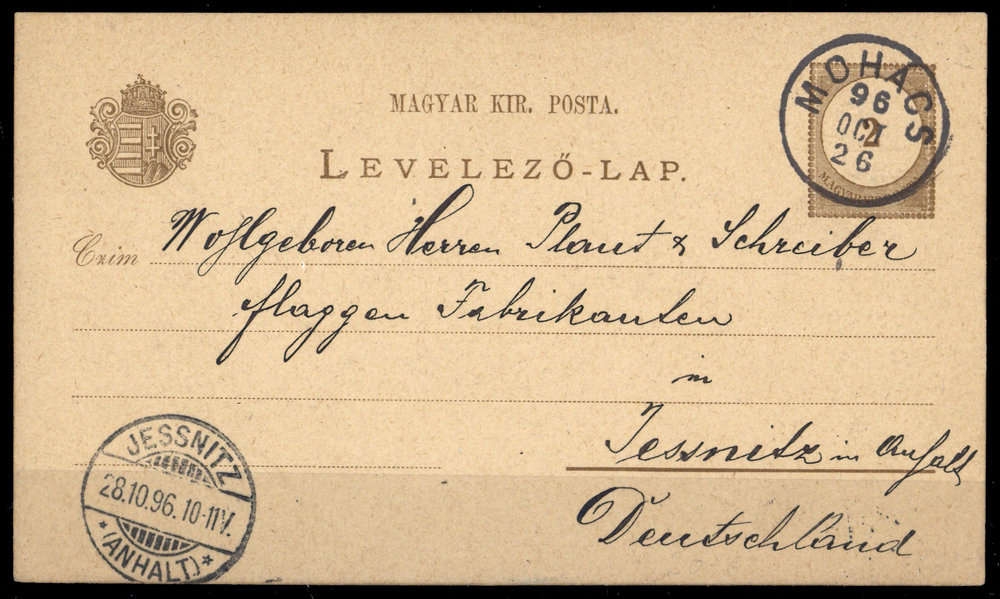 MAGYAR KIR. POSTA.
LEVELEZŐ-LAP.
MOHÁCS
96
OCT
26
2
MAGYAR
Czim
Wohlgeboren Herren Plaut & Schreiber
flaggen Fabrikanten
in
Jessnitz in Anhalt
Deutschland
JESSNITZ
28.10.96.10-11V.
*(ANHALT)*